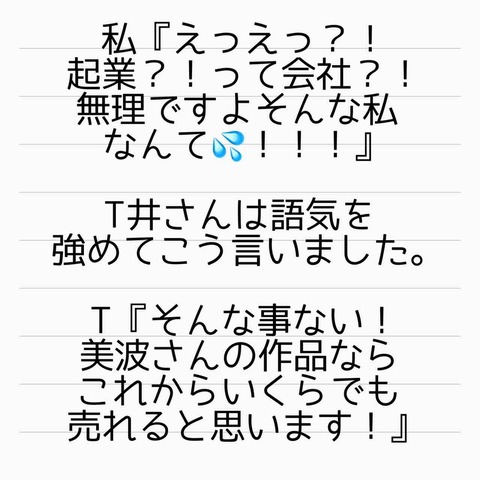 私『えっえっ？！
起業？！って会社？！
無理ですよそんな私
なんて💦！！！』
T井さんは語気を
強めてこう言いました。
T『そんな事ない！
美波さんの作品なら
これからいくらでも
売れると思います！』